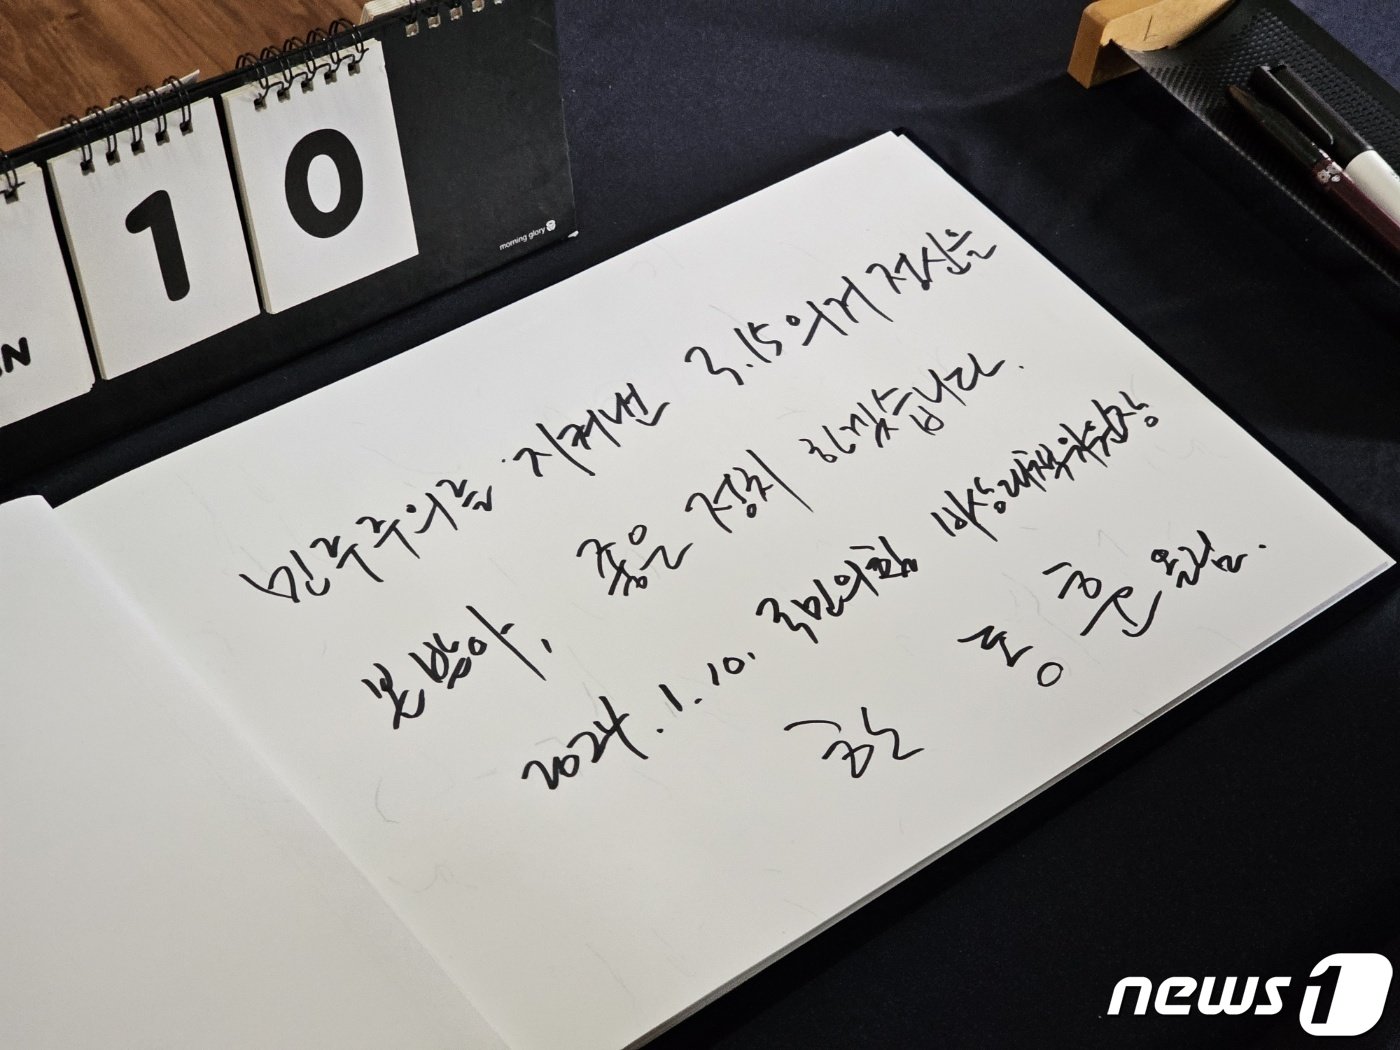 1 0
morning glory
민주주의를 지켜낸 3.15의거 정신을
본받아, 좋은 정치 하겠습니다.
2024.1.10. 국민의힘 비상대책위원장
한 동 훈 올림.
news1